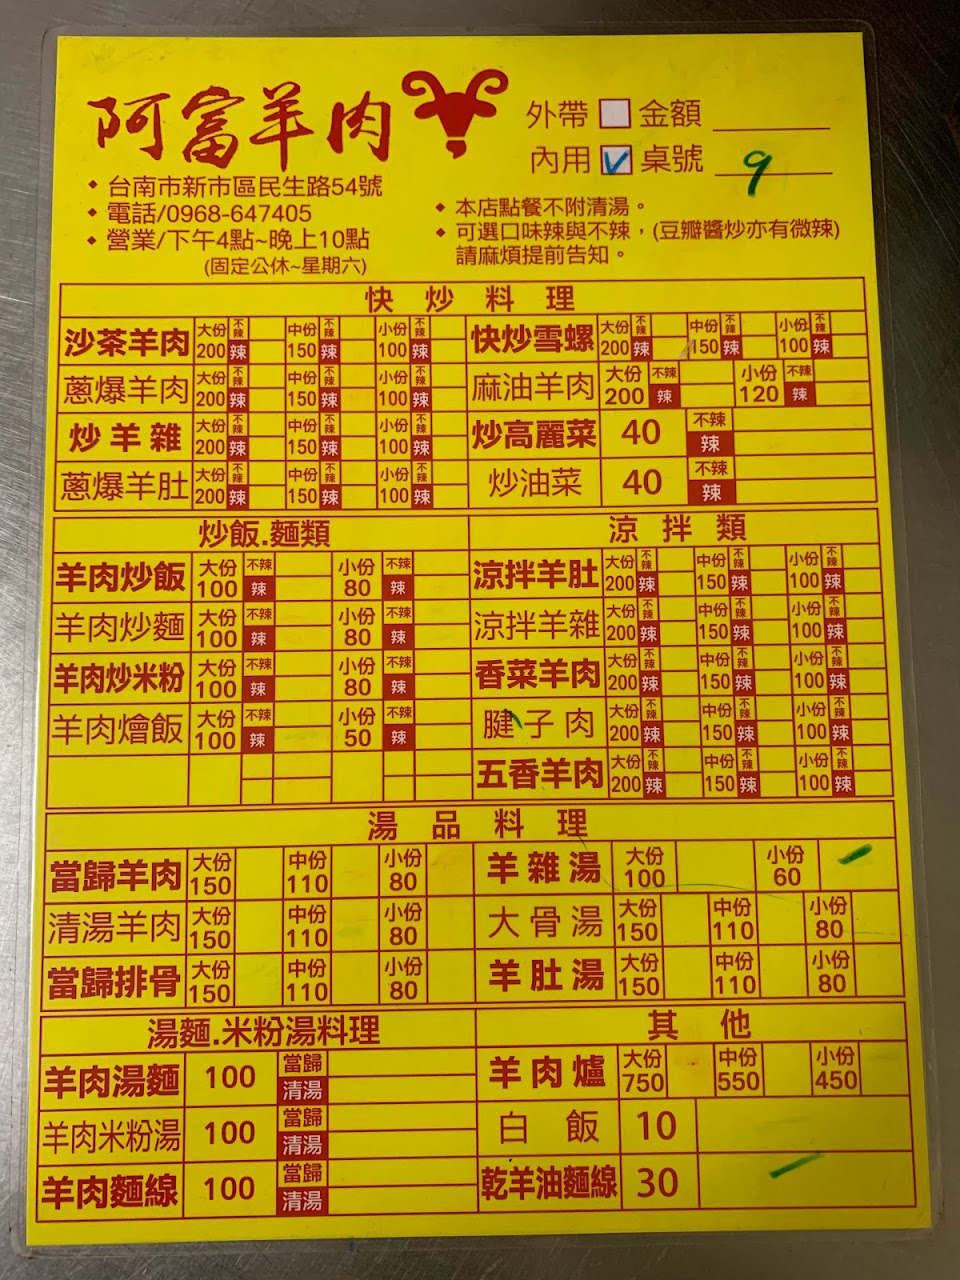 阿富羊肉
外帶 金額
內用 V 桌號 9
台南市新市區民生路54號
電話/0968-647405
營業/下午4點~晚上10點
(固定公休~星期六)
本店點餐不附清湯。
可選口味辣與不辣，(豆瓣醬炒亦有微辣)
請麻煩提前告知。
快炒料理
沙茶羊肉 大份 200 不辣 辣 中份 150 不辣 辣 小份 100 不辣 辣
蔥爆羊肉 大份 200 不辣 辣 中份 150 不辣 辣 小份 100 不辣 辣
炒羊雜 大份 200 不辣 辣 中份 150 不辣 辣 小份 100 不辣 辣
蔥爆羊肚 大份 200 不辣 辣 中份 150 不辣 辣 小份 100 不辣 辣
快炒雪螺 大份 200 不辣 辣 中份 150 不辣 辣 小份 100 不辣 辣
麻油羊肉 大份 200 不辣 辣 小份 120 不辣 辣
炒高麗菜 40 不辣 辣
炒油菜 40 不辣 辣
炒飯.麵類
羊肉炒飯 大份 100 不辣 辣 小份 80 不辣 辣
羊肉炒麵 大份 100 不辣 辣 小份 80 不辣 辣
羊肉炒米粉 大份 100 不辣 辣 小份 80 不辣 辣
羊肉燴飯 大份 100 不辣 辣 小份 50 不辣 辣
涼拌類
涼拌羊肚 大份 200 不辣 辣 中份 150 不辣 辣 小份 100 不辣 辣
涼拌羊雜 大份 200 不辣 辣 中份 150 不辣 辣 小份 100 不辣 辣
香菜羊肉 大份 200 不辣 辣 中份 150 不辣 辣 小份 100 不辣 辣
腱子肉 大份 200 不辣 辣 中份 150 不辣 辣 小份 100 不辣 辣
五香羊肉 大份 200 不辣 辣 中份 150 不辣 辣 小份 100 不辣 辣
湯品料理
當歸羊肉 大份 150 中份 110 小份 80
清湯羊肉 大份 150 中份 110 小份 80
當歸排骨 大份 150 中份 110 小份 80
羊雜湯 大份 100 小份 60
大骨湯 大份 150 中份 110 小份 80
羊肚湯 大份 150 中份 110 小份 80
湯麵.米粉湯料理
羊肉湯麵 100 當歸 清湯
羊肉米粉湯 100 當歸 清湯
羊肉麵線 100 當歸 清湯
其他
羊肉爐 大份 750 中份 550 小份 450
白飯 10
乾羊油麵線 30